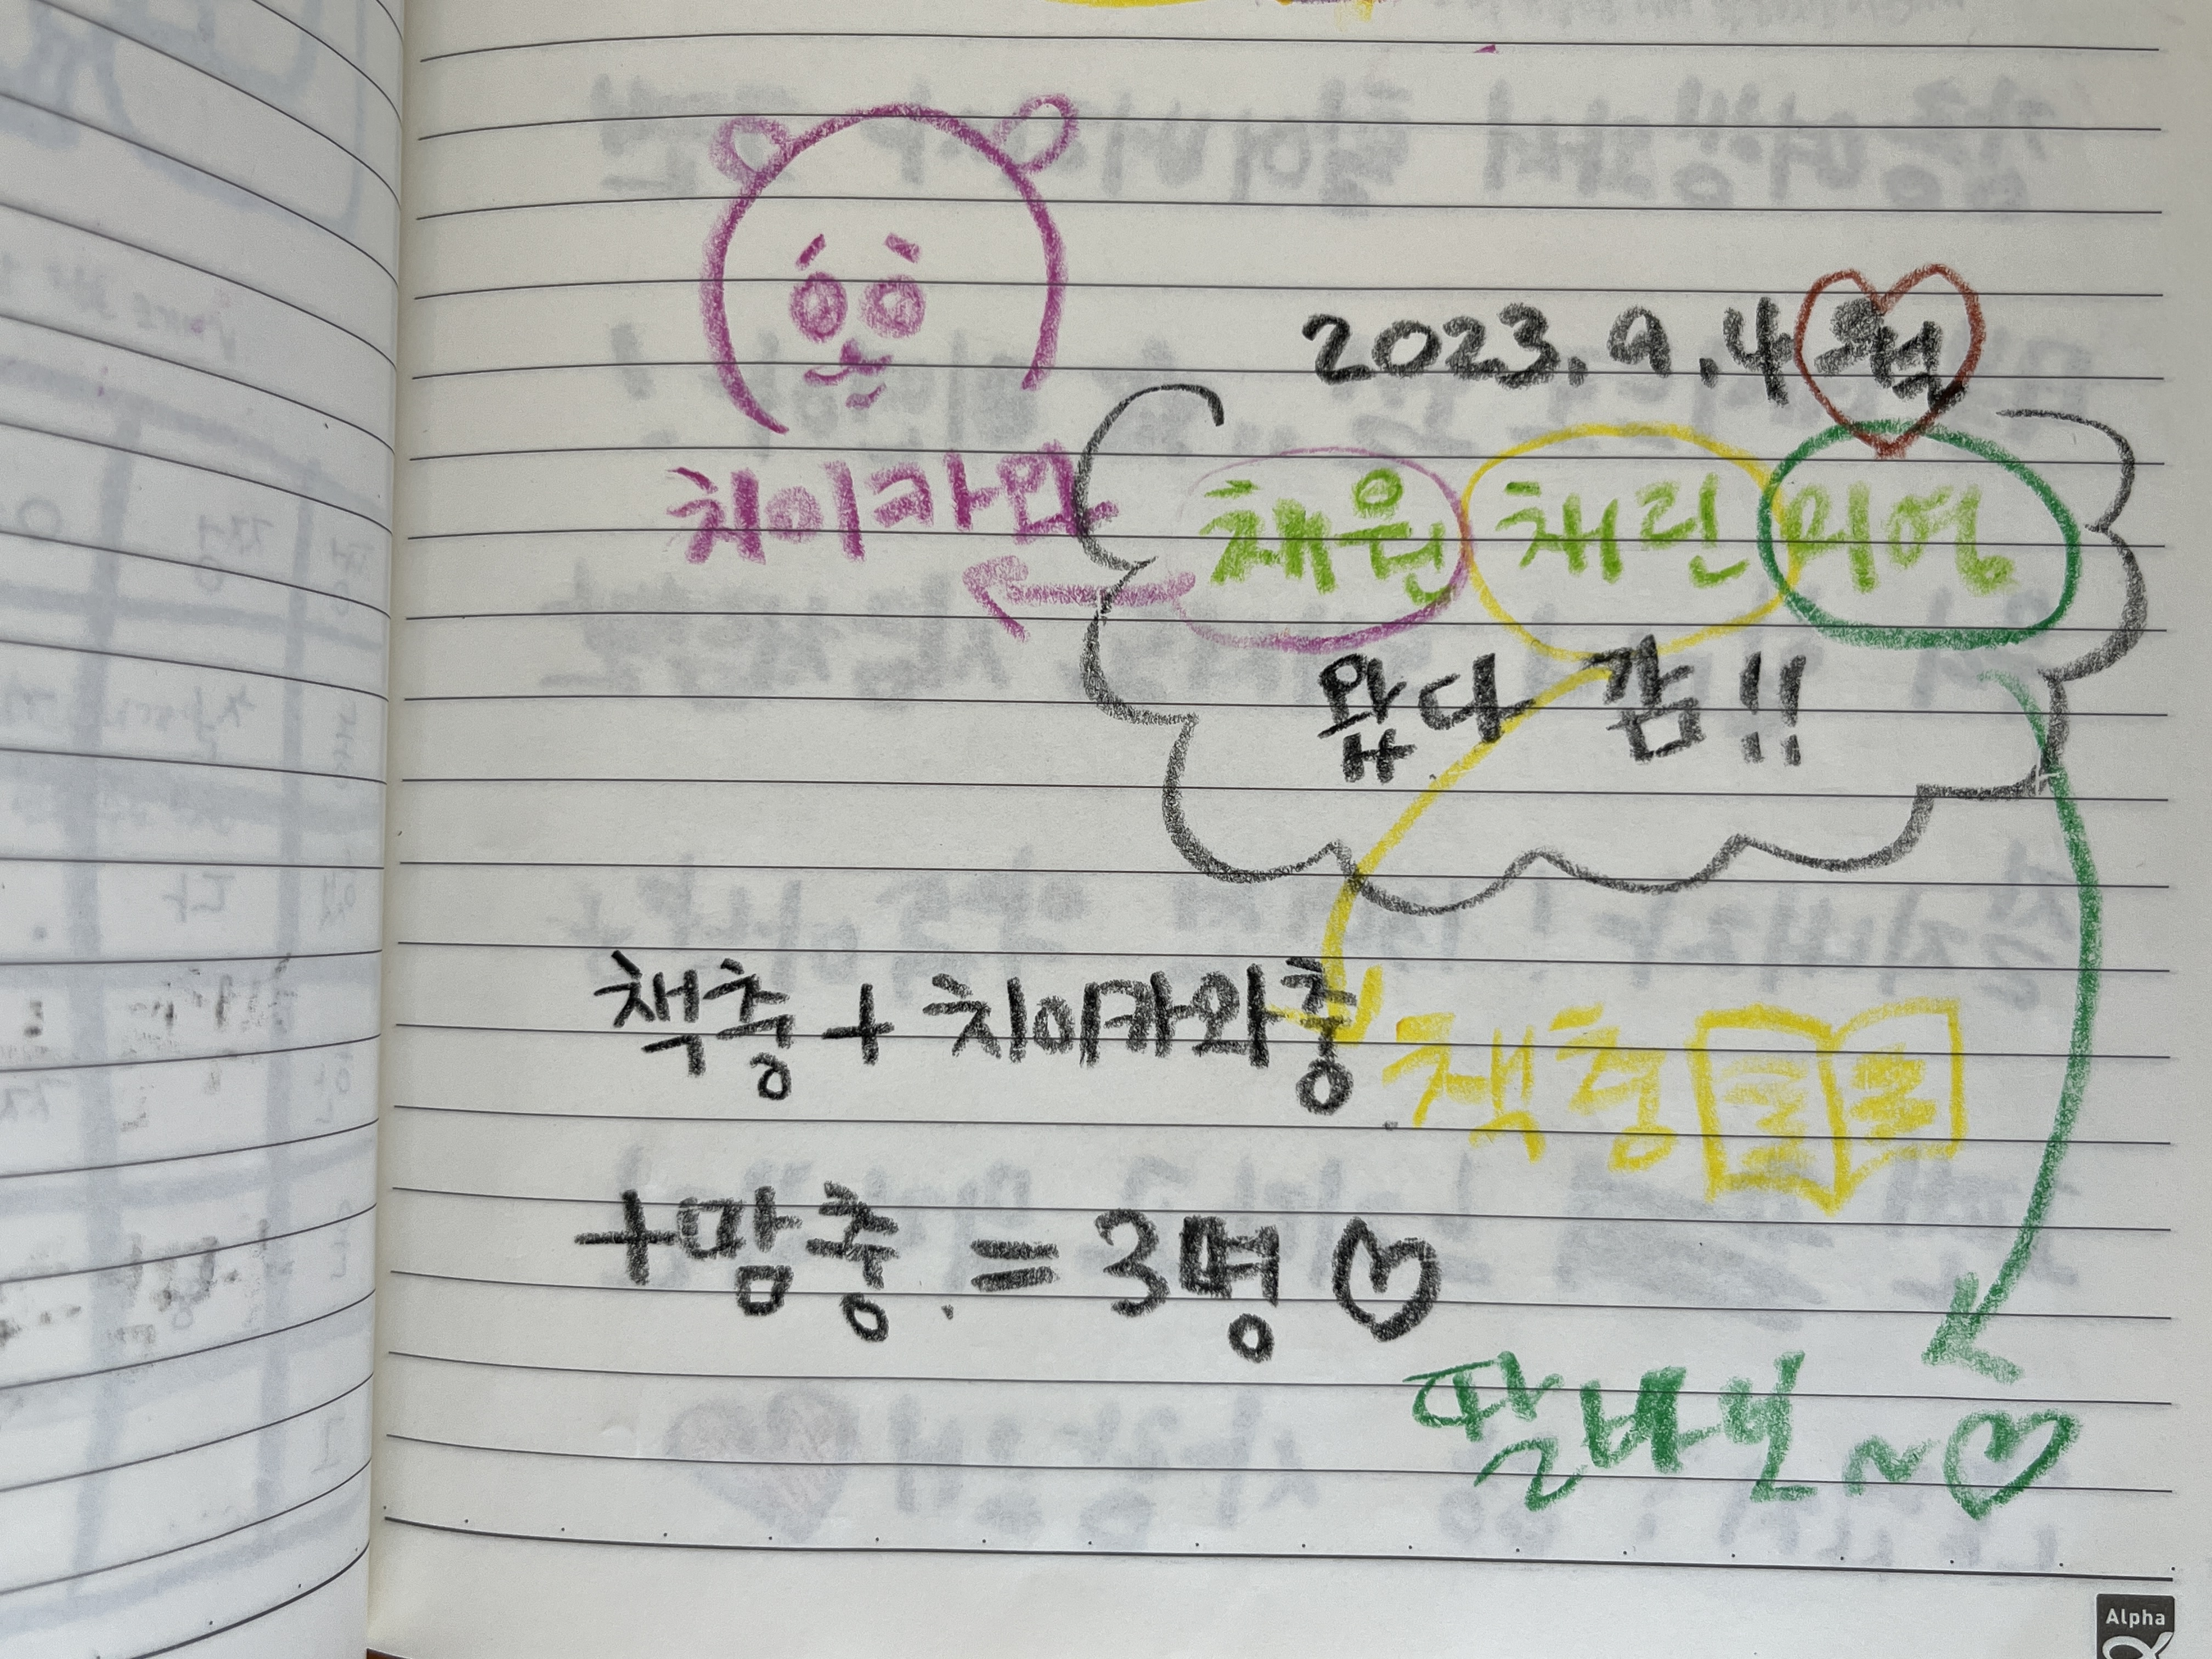 2023.9.4 월
치이카와
채원 채린 미영
왔다 감!!
책충 + 치이카와충
책충
+망충.=3명♡
팔바닌~♡
Alpha